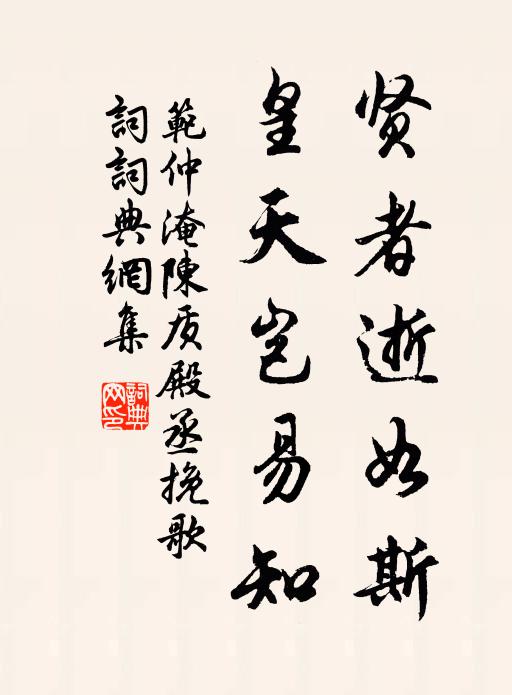 贤者逝如斯
皇天岂易知
範仲淹陳质殿丞挽歌
詞詞典網集
詞典网印